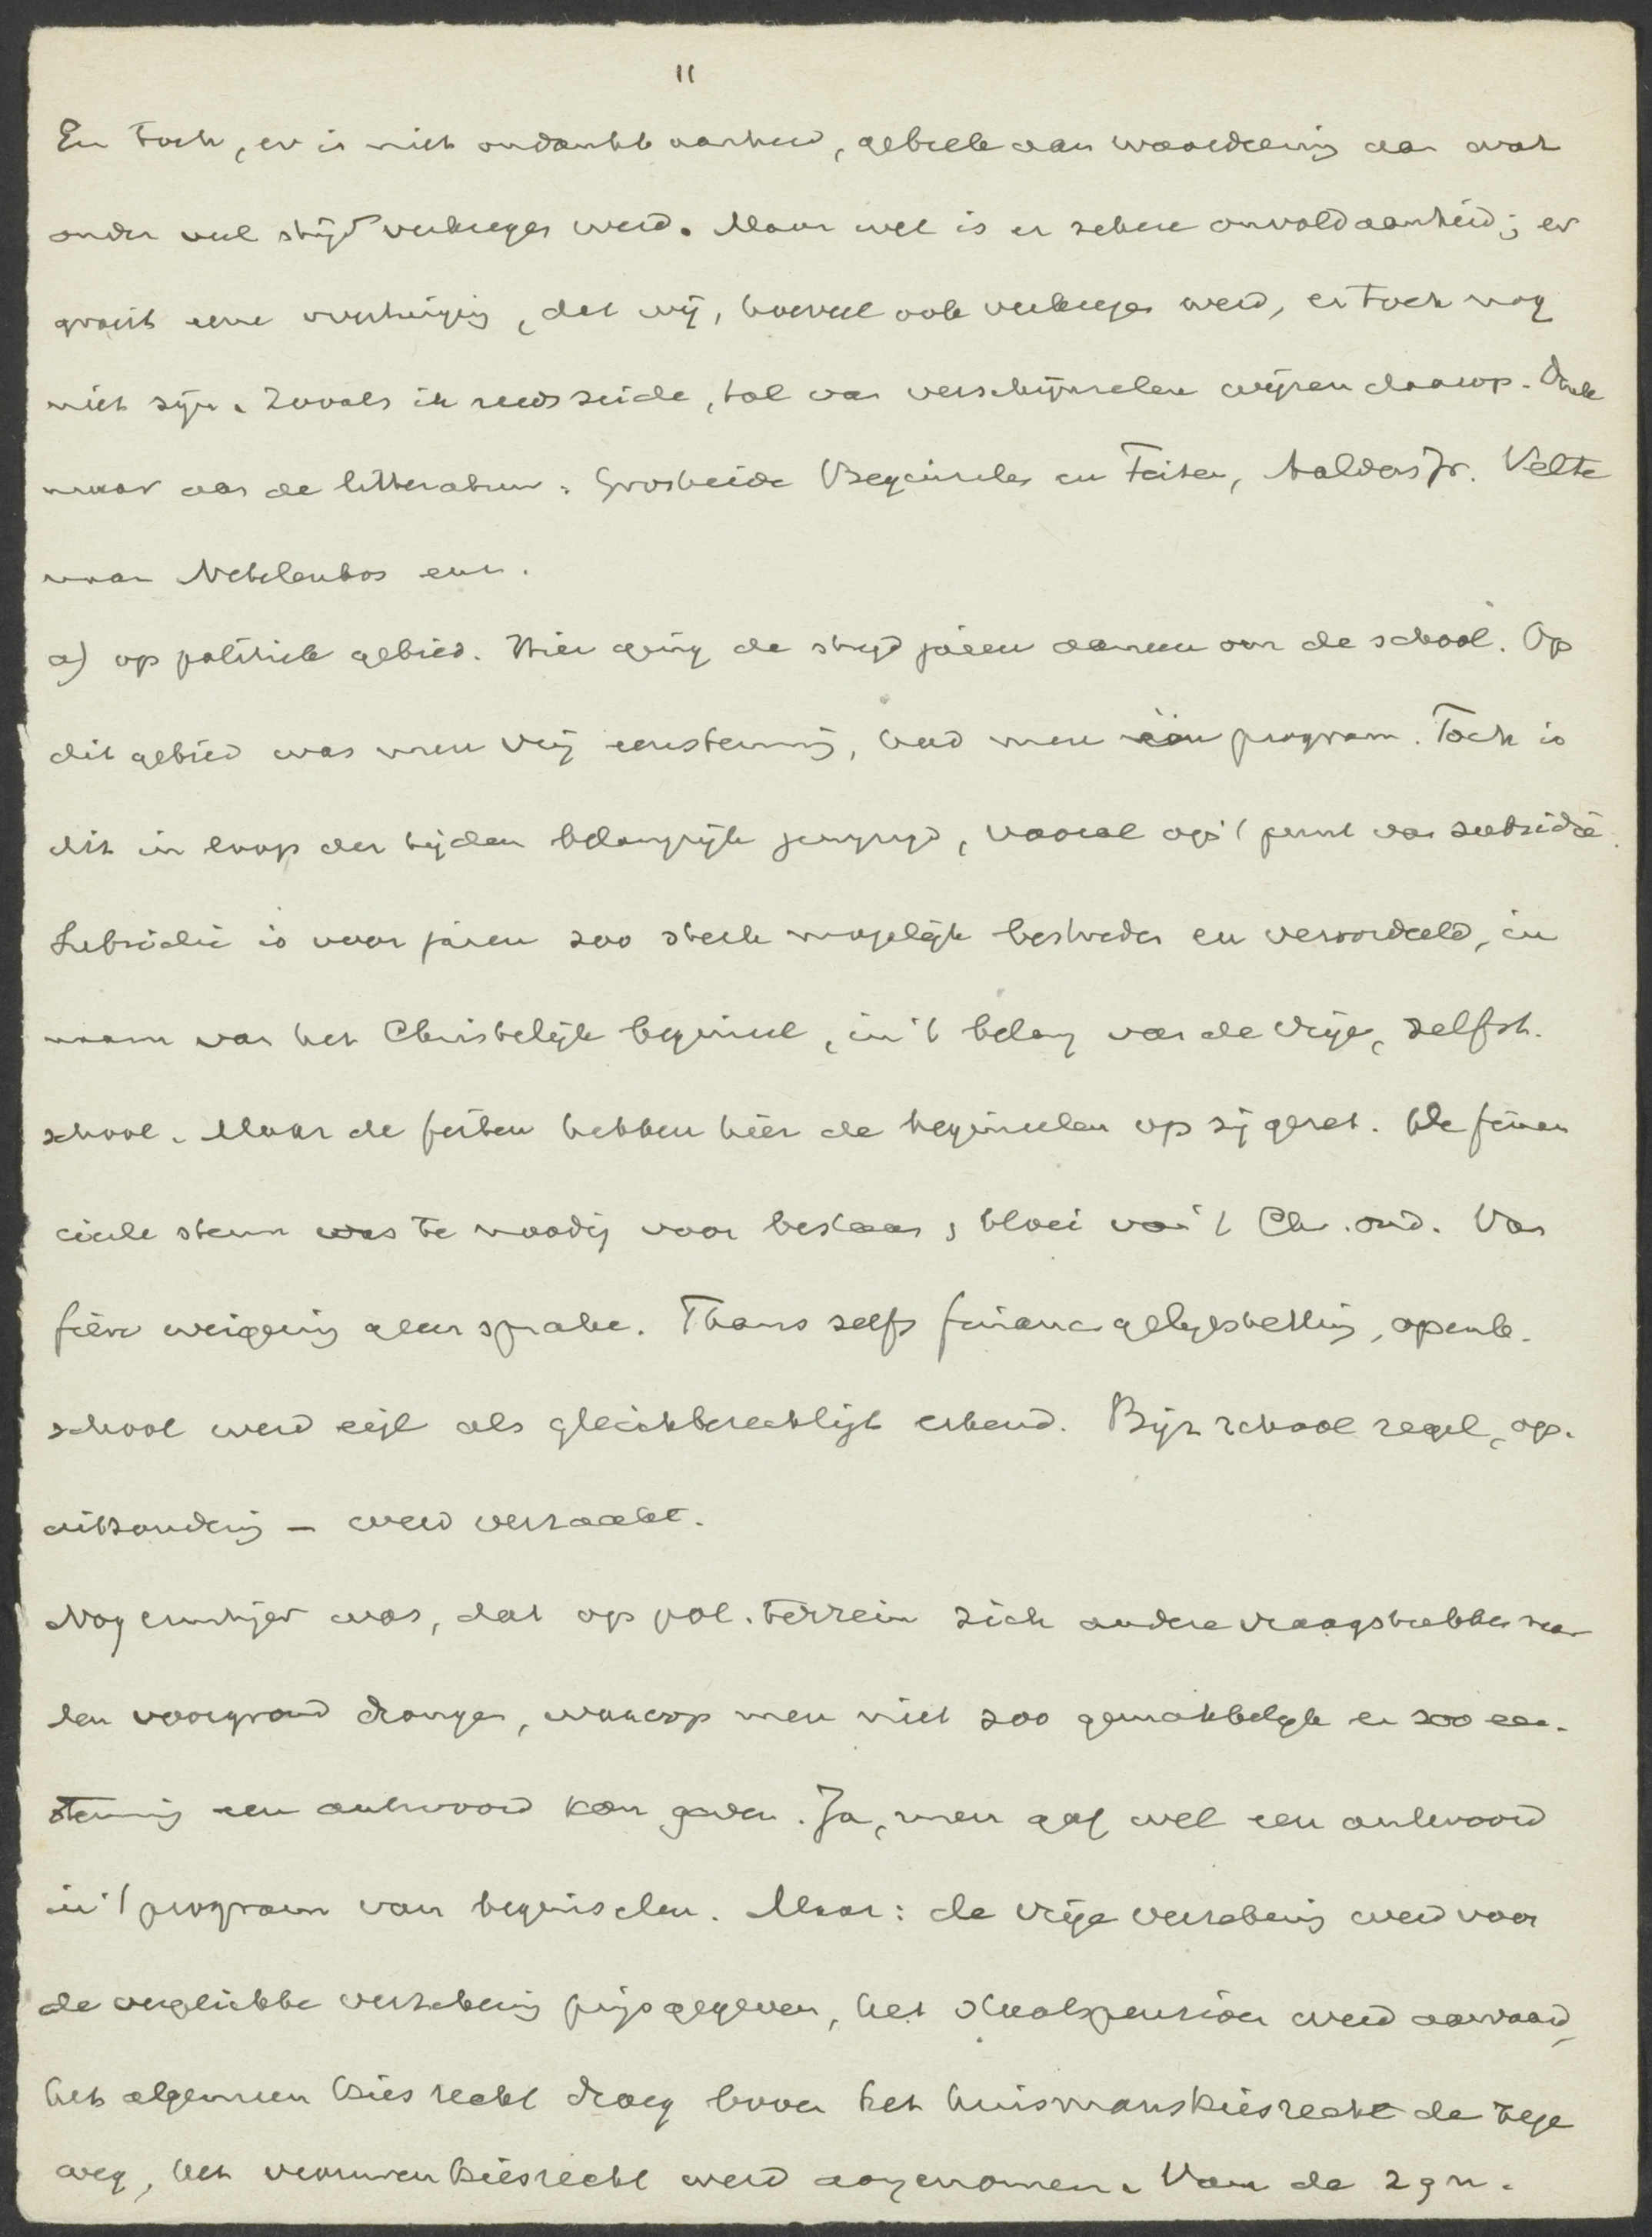 11
En toch, er is niet ondankbaarheid, gebrek aan waardeering aan wat
onder veel strijd verkregen werd. Maar wel is er zekere onvoldaanheid; er
groeit eene overtuiging, dat wij, hoeveel ook verkregen werd, er toch nog
niet zijn. Zooals ik reeds zeide, tal van verschijnselen wijzen daarop. Denk
maar aan de litteratuur: Grosheide Beginselen en Feiten, Aalders Jr. Velte
maar Netelenbos enz.
a) op politiek gebied. Hier ging de strijd jaren aaneen om de school. Op
dit gebied was men vrij eenstemmig, had men één program. Toch is
dit in loop der tijden belangrijk gewijzigd, vooral op 't punt van subsidie.
Subsidie is voor jaren zoo sterk mogelijk bestreden en veroordeeld, in
naam van het Christelijk beginsel, in 't belang van de vrije, zelfst.
school. Maar de feiten hebben hier de beginselen op zij gezet. De finan
cieele steun was te noodig voor bestaan, bloei van 't Chr. ond. Van
fiere weigering geen sprake. Thans zelfs financ gelijkstelling, openb.
school werd eigl als gleichberechtigt erkend. Bijz school regel, op.
uitzondering – werd verzaakt.
Nog ernstiger was, dat op pol. terrein zich andere vraagstukken naar
den voorgrond drongen, waarop men niet zoo gemakkelijk en zoo een-
stemmig een antwoord kon geven. Ja, men gaf wel een antwoord
in 't program van beginselen. Maar: de vrije verzekering werd voor
de verplichte verzekering prijsgegeven, het staatspensioen werd aanvaard,
het algemeen kiesrecht droeg boven het huismanskiesrecht de zege
weg, het vrouwenkiesrecht werd aangenomen. Van de zgn.